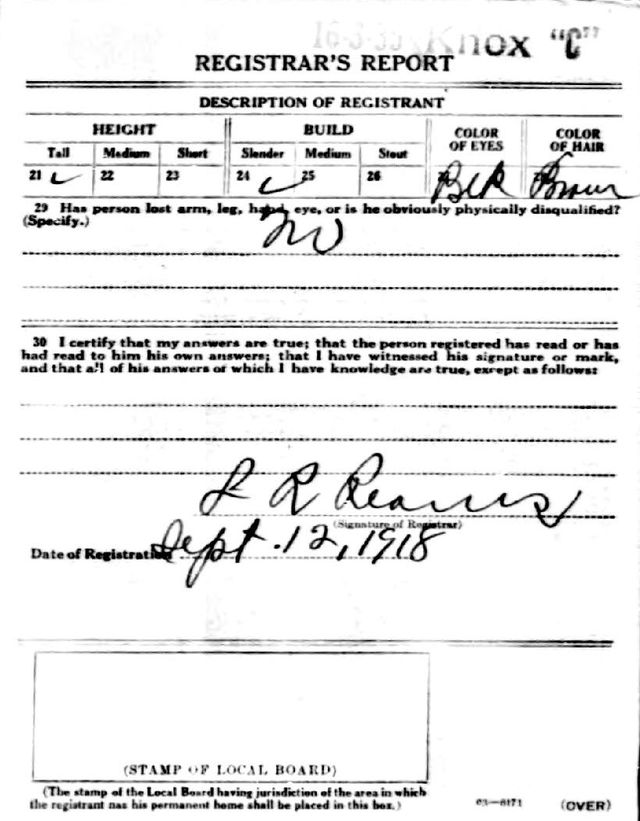 Knox "C"
REGISTRAR'S REPORT
DESCRIPTION OF REGISTRANT
HEIGHT BUILD COLOR OF EYES COLOR OF HAIR
Tall Medium Short Slender Medium Stout
21 ✓ 22 23 24 ✓ 25 26 Blk Brown
29 Has person lost arm, leg, hand, eye, or is he obviously physically disqualified?
(Specify.)
No
30 I certify that my answers are true; that the person registered has read or has
had read to him his own answers; that I have witnessed his signature or mark,
and that all of his answers of which I have knowledge are true, except as follows:
R
(Signature of Registrar)
Date of Registration Sept. 12, 1918
(STAMP OF LOCAL BOARD)
(The stamp of the Local Board having jurisdiction of the area in which
the registrant has his permanent home shall be placed in this box.)
03—6171 (OVER)